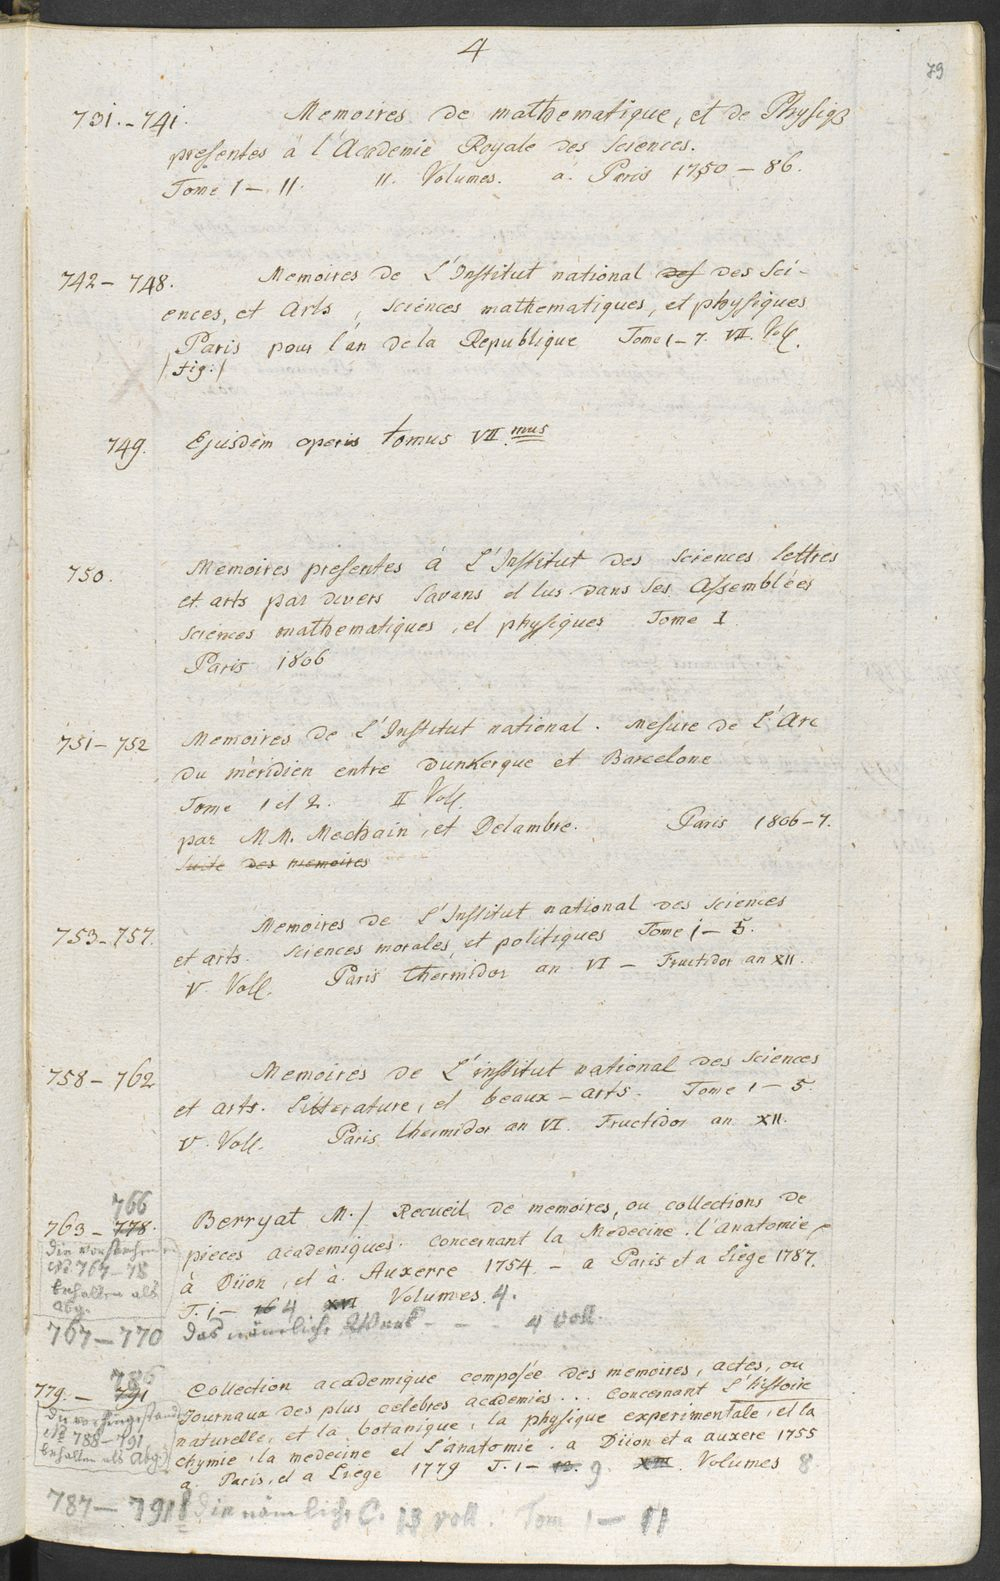 4
79
731.-741. Memoires de mathematique, et de Physiq3
presentés à l'Academie Royale des Sciences.
Tome 1 - 11. 11. Volumes. a. Paris 1750 - 86.
742 - 748. Memoires de L'Institut national des des Sci-
ences, et Arts, sciences mathematiques, et physiques
Paris pour l'an de la Republique Tome 1 - 7. VII. Voll.
/ fig: /
749. Ejusdem operis tomus VII.mus
750. Memoires presentes à L'Institut des sciences lettres
et arts par divers Savans et lus dans ses Assemblées
sciences mathematiques, et physiques Tome 1
Paris 1806
751 - 752 Memoires de L'Institut national. Mesure de L'Arc
du méridien entre Dunkerque et Barcelone
Tome 1 et 2. II Voll.
par M.M. Mechain, et Delambre. Paris 1806-7.
Suite des memoires
753-757. Memoires de L'Institut national des sciences
et arts. sciences morales, et politiques Tome 1 - 5.
V Voll. Paris thermidor an VI - Fructidor an XII.
758 - 762 Memoires de L'institut national des sciences
et arts. Litterature, et beaux-arts. Tome 1 - 5
V. Voll. Paris thermidor an VI. Fructidor an XII.
766
763 - 778. Berryat M. / Recueil de memoires, ou collections de
pieces academiques. concernant la Médecine. l'anatomie
à Dijon, et à Auxerre 1754 - a Paris et a Liège 1787.
T. 1 - 16 4 XVI Volumes. 4.
No 767-78
behalten als
Abg.
767-770 das nämliche Werk - - - 4 voll.
786
779. - 791 Collection academique composée des memoires, actes, ou
Journaux des plus celebres academies... concernant L'histoire
naturelle, et la botanique, la physique experimentale, et la
chymie, la medecine et L'anatomie. a Dijon et a auxere 1755
a Paris, et a Liege 1779 T. 1 - 13. 9. XIII. Volumes 8
No 788-791
behalten als Abg.
787 - 791 die nämliche C. voll. Tom 1 - 11